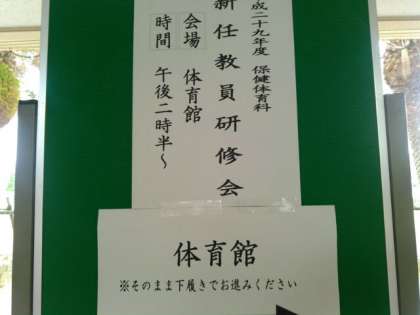 成二十九年度 保健体育科
新任教員研修会
会場 体育館
時間 午後二時半～
体育館
※そのまま下履きでお進みください